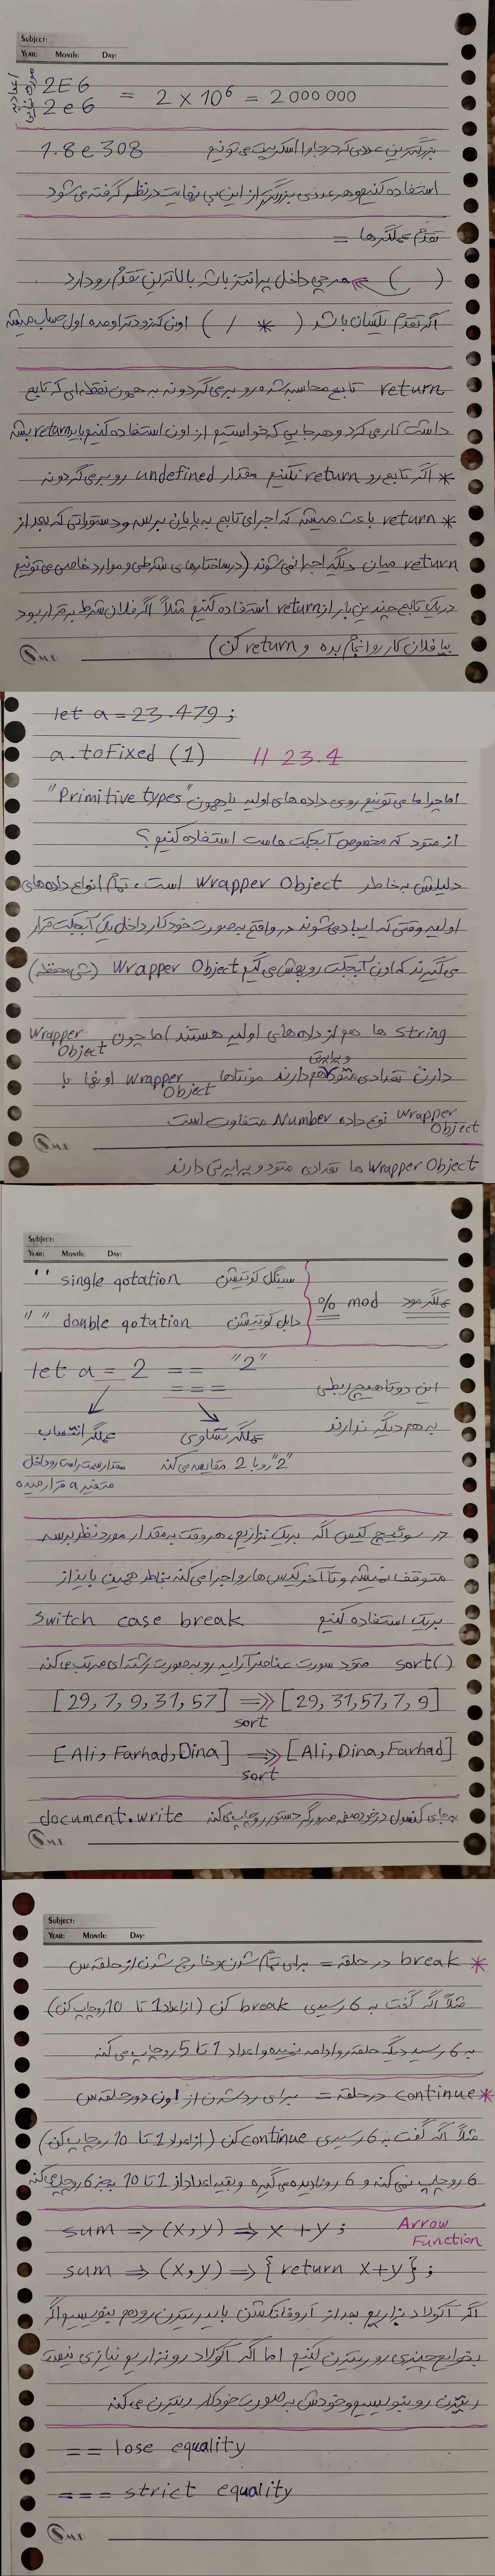 Subject:
Year: Month: Day:
اعداد به صورت نمایی
2E6
2e6 = 2 × 10⁶ = 2000 000
بزرگترین عددی که در جاوا اسکریپت می تونیم 1.8e308
استفاده کنیم و هر عددی بزرگتر از این بی نهایت در نظر گرفته می شود
تقدم عملگرها =
( ) => هر چی داخل پرانتز باشه بالاترین تقدم رو دارد
اگر تقدم یکسان باشد ( / * ) اونی که زودتر اومده اول حساب میشه
return تابع محاسبه شده رو بر می گردونه به همون نقطه ای که تابع
داشت کار می کرد و هر جایی که خواستیم از اون استفاده کنیم باید return بشه
* اگر تابع رو return نکنیم مقدار undefined رو بر می گردونه
* return باعث میشه که اجرای تابع به پایان برسه و دستوراتی که بعد از
return میان دیگه اجرا نمی شوند (در ساختارهای شرطی و موارد خاصی می تونیم
در یک تابع چندین بار از return استفاده کنیم مثلاً اگر فلان شرط برقرار بود
بیا فلان کار رو انجام بده و return کن)
let a = 23.479;
a.toFixed (1) // 23.4
اما چرا ما می تونیم روی داده های اولیه یا همون "Primitive types"
از متود که مخصوص آبجکت هاست استفاده کنیم؟
دلیلش به خاطر Wrapper Object است، تمام انواع داده های
اولیه وقتی که ایجاد می شوند در واقع به صورت خودکار داخل یک آبجکت قرار
می گیرند که اون آبجکت رو بهش می گیم Wrapper Object (شی محفظه)
string ها هم از داده های اولیه هستند اما چون Wrapper Object
دارن تعدادی متود و پراپرتی هم دارند منتها Wrapper Object اونها با
Wrapper Object نوع داده Number متفاوت است
Wrapper Object ها تعدادی متود و پراپرتی دارند
Subject:
Year: Month: Day:
' ' single qotation سینگل کوتیشن
" " double qotation دابل کوتیشن
عملگر مود % mod
let a = 2 == "2"
===
این دوتا هیچ ربطی
به هم دیگر ندارند
عملگر تساوی
"2" رو با 2 مقایسه می کنه
عملگر انتساب
مقدار سمت راست رو داخل
متغیر a قرار میده
در سوئیچ کیس اگه بریک نزاریم، هر وقت به مقدار مورد نظر برسه
متوقف نمیشه و تا آخر کیس ها رو اجرا می کنه بخاطر همین باید از
بریک استفاده کنیم switch case break
sort() متود سورت عناصر آرایه رو به صورت رشته ای مرتب می کنه
[29, 7, 9, 31, 57] => [29, 31, 57, 7, 9]
sort
[Ali, Farhad, Dina] => [Ali, Dina, Farhad]
sort
به جای کنسول در خود صفحه مرورگر دستور رو چاپ می کنه document.write
Subject:
Year: Month: Day:
* break در حلقه = برای تمام شدن و خارج شدن از حلقه س
مثلاً اگه گفت به 6 رسیدی break کن (از اعداد 1 تا 10 رو چاپ کن)
به 6 رسید دیگه حلقه رو ادامه نمیده و اعداد 1 تا 5 رو چاپ می کنه
* continue در حلقه = برای رد شدن از اون دور حلقه س
مثلاً اگه گفت به 6 رسیدی continue کن (از اعداد 1 تا 10 رو چاپ کن)
6 رو چاپ نمی کنه و 6 رو نادیده می گیره و بقیه اعداد از 1 تا 10 بجز 6 رو چاپ می کنه
sum => (x,y) => x + y ; Arrow Function
sum => (x,y) => { return x+y } ;
اگر آکولاد بزاریم بعد از آروفانکشن باید ریترن رو هم بنویسیم اگر
بخوایم چیزی رو ریترن کنیم اما اگه آکولاد رو نزاریم نیازی نیست
ریترن رو بنویسیم و خودش به صورت خودکار ریترن می کنه
== lose equality
=== strict equality